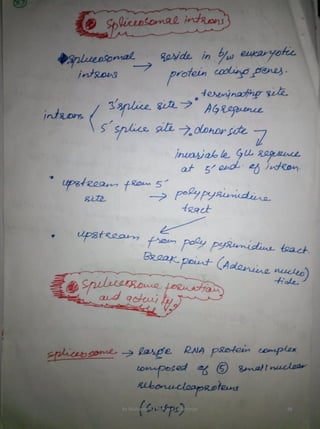 Spliceosomal introns
Spliceosomal introns → reside in b/w eukaryotic
protein coding genes.
introns
3' splice site → terminating site
AG sequence
5' splice site → donor site
invariable GU sequence
at 5' end of intron
upstream from 5'
site → polypyrimidine
tract
upstream from poly pyrimidine tract.
Break point (Adenine nucleo
tide)
Spliceosome formation
and activity
Spliceosome → large RNA protein complex
composed of 5 small nuclear
ribonucleoproteins
(SnRPs)